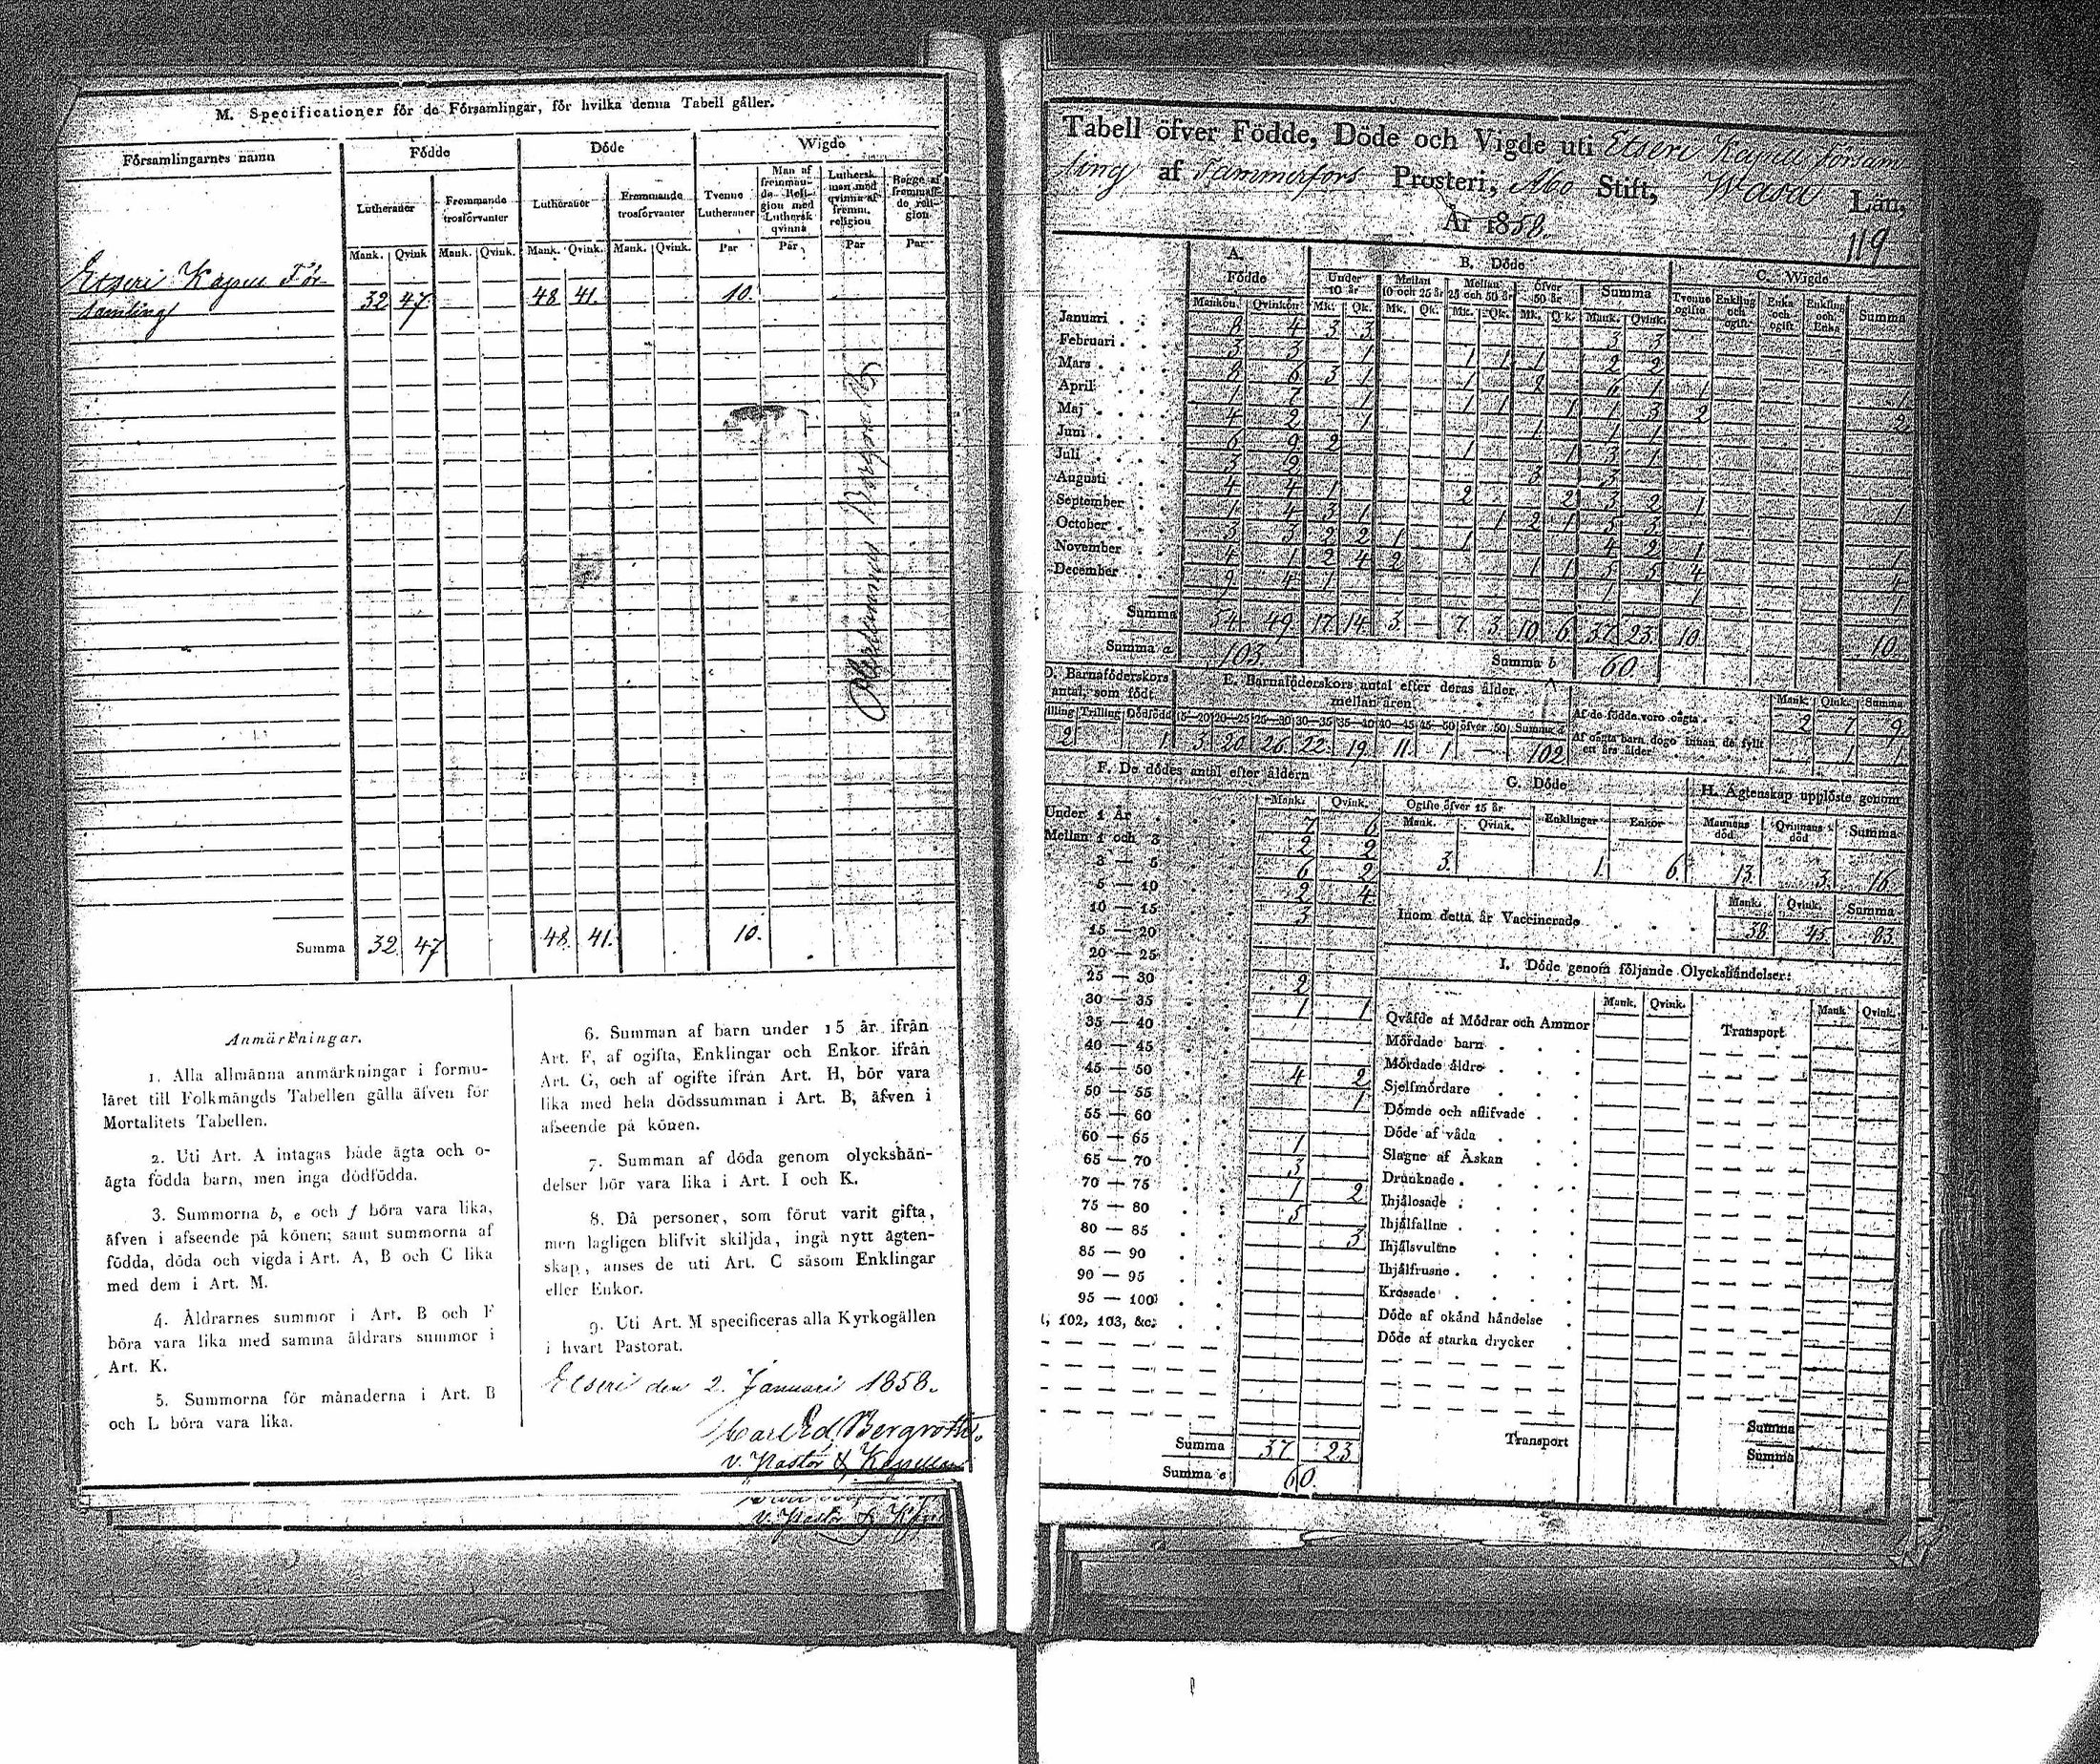 M. Specificationer för de Församlingar, för hvilka denna Tabell gäller.
Församlingarnes namn
Födde
Döde
Wigde
Lutheraner
Fremmande trosförvanter
Lutheraner
Fremmande trosförvanter
Tvenne Lutheraner
Man af fremmande Religion med Luthersk qvinna
Luthersk man med qvinna af fremm. religion
Begge af fremmande religion
Mank. Qvink Mank. Qvink. Mank. Qvink. Mank. Qvink. Par Par Par Par
Etseri Kapell För-
samling 32 47 48 41. 10.
Summa 32 47 48. 41. 10.
Anmärkningar.
1. Alla allmänna anmärkningar i formu-
läret till Folkmängds Tabellen gälla äfven för
Mortalitets Tabellen.
2. Uti Art. A intagas både ägta och o-
ägta födda barn, men inga dödfödda.
3. Summorna b, e och f böra vara lika,
äfven i afseende på könen; samt summorna af
födda, döda och vigda i Art. A, B och C lika
med dem i Art. M.
4. Åldrarnes summor i Art. B och F
böra vara lika med samma åldrars summor i
Art. K.
5. Summorna för månaderna i Art. B
och L böra vara lika.
6. Summan af barn under 15 år ifrån
Art. F, af ogifta, Enklingar och Enkor ifrån
Art. G, och af ogifte ifrån Art. H, bör vara
lika med hela dödssumman i Art. B, äfven i
afseende på könen.
7. Summan af döda genom olyckshän-
delser bör vara lika i Art. I och K.
8. Då personer, som förut varit gifta,
men lagligen blifvit skiljda, ingå nytt ägten-
skap, anses de uti Art. C såsom Enklingar
eller Enkor.
9. Uti Art. M specificeras alla Kyrkogällen
i hvart Pastorat.
Etseri den 2. Januari 1858.
Carl Ed. Bergroth.
v. Pastor & Kapellan
Tabell öfver Födde, Döde och Vigde uti Etseri Kapell Församling
af Tammerfors Prosteri, Åbo Stift, Wasa Län,
År 1858.
119
A. Födde
B. Döde
C. Wigde
Under 10 år
Mellan 10 och 25 år
Mellan 25 och 50 år
öfver 50 år
Summa
Tvenne ogifte
Enkling och ogift
Enka och ogift
Enkling och Enka
Summa
Mankön. Qvinkön. Mk. Qk. Mk. Qk. Mk. Qk. Mk. Qk. Mank. Qvink.
Januari 8 4 3 3 3 3
Februari 3 3 1 1 1 1 2 2
Mars 8 6 3 1 1 2 6 1 1 1
April 1 7 1 1 1 1 1 3 2 2
Maj 4 2 1 1 1 1
Juni 6 9 2 1 1 3 1
Juli 3 2 3 3
Augusti 4 4 1 2 2 3 2 1 1
September 1 4 3 1 1 2 1 5 3
October 3 3 2 2 1 1 4 2 1 1
November 4 1 2 4 2 1 1 5 5 4 4
December 9 4 1 1 1 1
Summa 54 49 17 14. 3. — 7. 3. 10 6 37. 23. 10 10.
Summa a 103.
Summa b 60.
D. Barnaföderskors antal, som födt
E. Barnaföderskors antal efter deras ålder mellan åren
illing Trilling Dödfödd 15—20 20—25 25—30 30—35 35—40 40—45 45—50 öfver 50 Summa d
2 1 3 20 26 22 19 11 1 — 102
Mank. Qvink. Summa
Af de födde voro oägta 2 7 9
Af oägta barn dogo innan de fyllt ett års ålder 1 1
F. De dödes antal efter åldern
Mank. Qvink.
Under 1 År 7 6
Mellan 1 och 3 2 2
3 — 5 6 2
5 — 10 2 4
10 — 15 3
15 — 20
20 — 25
25 — 30 2
30 — 35 1 1
35 — 40
40 — 45
45 — 50 4 2
50 — 55 1
55 — 60
60 — 65 1
65 — 70 3
70 — 75 1 2
75 — 80 5
80 — 85 3
85 — 90
90 — 95
95 — 100
, 102, 103, &c.
Summa 37 23
Summa e 60.
G. Döde
Ogifte öfver 15 år
Mank. Qvink. Enklingar Enkor
3. 1. 6.
H. Ägtenskap upplöste genom
Mannens död Qvinnans död Summa
13. 3. 16
Mank. Qvink. Summa
Inom detta år Vaccinerade 38. 45. 83.
I. Döde genom följande Olyckshändelser:
Mank. Qvink. Mank. Qvink.
Qväfde af Mödrar och Ammor
Transport
Mördade barn
Mördade äldre
Sjelfmördare
Dömde och aflifvade
Döde af våda
Slagne af Åskan
Drunknade
Ihjälosade
Ihjälfallne
Ihjälsvultne
Ihjälfrusne
Krossade
Döde af okänd händelse
Döde af starka drycker
Transport
Summa
Summa